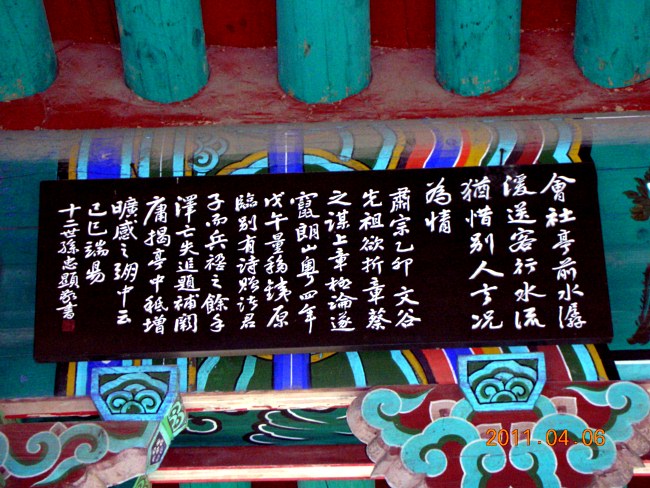 會社亭前水潺
湲送客行水流
猶惜別人言况
為情
肅宗乙卯 文谷
先祖欲折章蔡
之謀上章極論遂
竄朗山粵四年
戊午量移鐵原
臨別有詩貽諸君
子而兵燹之餘手
澤亡失追題補闕
庸揭亭中秪增
曠感之淵中云
己巳端陽
十二世孫忠顯敬書
2011.04.06